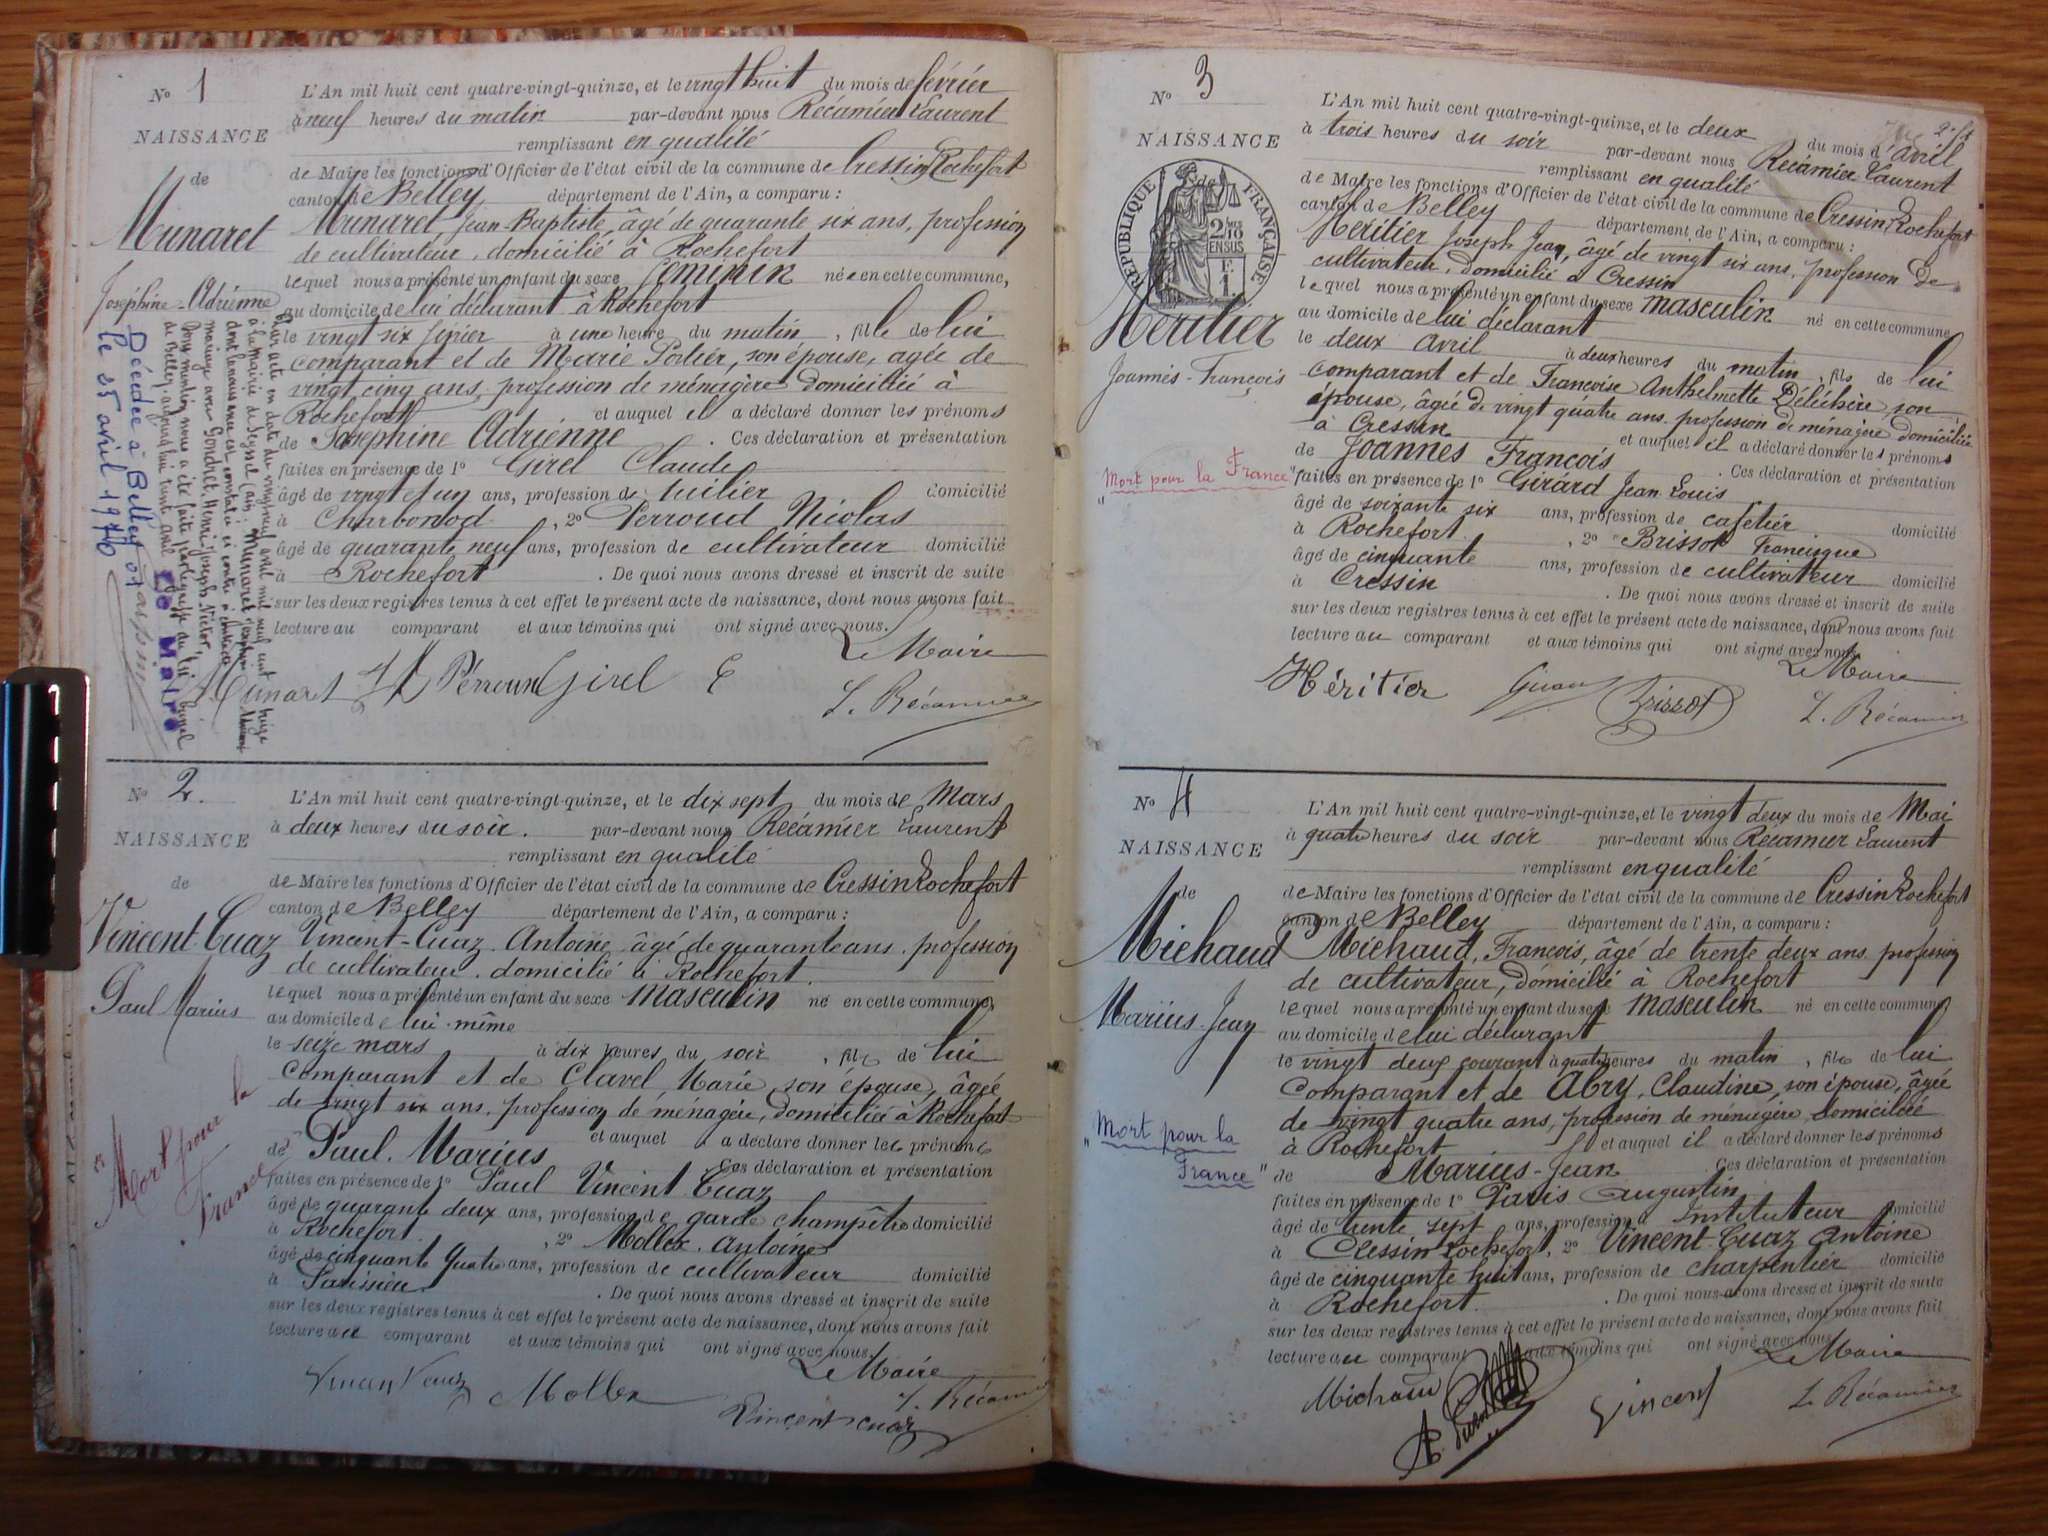 N° 1
NAISSANCE
de
Munaret
Joséphine-Adrienne
Décédée à Belley 01
le 25 avril 1976
Le Maire
L'An mil huit cent quatre-vingt-quinze, et le vingt huit du mois de février
à neuf heures du matin par-devant nous Récamier Laurent
remplissant en qualité
de Maire les fonctions d'Officier de l'état civil de la commune de Cressin Rochefort
canton de Belley département de l'Ain, a comparu :
Munaret, Jean-Baptiste, âgé de quarante six ans, profession
de cultivateur, domicilié à Rochefort
lequel nous a présenté un enfant du sexe féminin née en cette commune,
au domicile de lui déclarant à Rochefort
le vingt six février à une heure du matin, fille de lui
comparant et de Marie Portier, son épouse, agée de
vingt cinq ans, profession de ménagère domiciliée à
Rochefort et auquel il a déclaré donner les prénoms
de Joséphine Adrienne. Ces déclaration et présentation
faites en présence de 1° Girel Claude
âgé de vingt et un ans, profession de tuilier domicilié
à Charbonod, 2° Perroud Nicolas
âgé de quarante neuf ans, profession de cultivateur domicilié
à Rochefort. De quoi nous avons dressé et inscrit de suite
sur les deux registres tenus à cet effet le présent acte de naissance, dont nous avons fait
lecture au comparant et aux témoins qui ont signé avec nous.
Le Maire
Munaret Perroun Girel C
L. Récamier
N° 2.
NAISSANCE
de
Vincent-Cuaz
Paul Marius
"Mort pour la
France"
L'An mil huit cent quatre-vingt-quinze, et le dix sept du mois de Mars
à deux heures du soir. par-devant nous Récamier Laurent
remplissant en qualité
de Maire les fonctions d'Officier de l'état civil de la commune de Cressin Rochefort
canton de Belley département de l'Ain, a comparu :
Vincent-Cuaz Antoine âgé de quarante ans. profession
de cultivateur. domicilié à Rochefort.
lequel nous a présenté un enfant du sexe masculin né en cette commune,
au domicile de lui-même
le seize mars à dix heures du soir, fils de lui
comparant et de Clavel Marie son épouse, âgée
de vingt six ans, profession de ménagère, domiciliée à Rochefort
et auquel a déclaré donner les prénoms
de Paul. Marius Ces déclaration et présentation
faites en présence de 1° Paul Vincent Cuaz
âgé de quarante deux ans, profession de garde champêtre domicilié
à Rochefort, 2° Mollex. Antoine
âgé de cinquante quatre ans, profession de cultivateur domicilié
à . De quoi nous avons dressé et inscrit de suite
sur les deux registres tenus à cet effet le présent acte de naissance, dont nous avons fait
lecture au comparant et aux témoins qui ont signé avec nous.
Le Maire
Mollex
L. Récamier
Vincent cuaz
N° 3
NAISSANCE
de
RÉPUBLIQUE FRANÇAISE
2/10 EN SUS
Héritier
Joannès-François
"Mort pour la France"
L'An mil huit cent quatre-vingt-quinze, et le deux du mois d'avril
à trois heures du soir par-devant nous Récamier Laurent
remplissant en qualité
de Maire les fonctions d'Officier de l'état civil de la commune de Cressin Rochefort
canton de Belley département de l'Ain, a comparu :
Héritier Joseph Jean, âgé de vingt six ans, profession de
cultivateur, domicilié à Cressin
lequel nous a présenté un enfant du sexe masculin né en cette commune,
au domicile de lui déclarant
le deux avril à deux heures du matin, fils de lui
comparant et de Françoise Anthelmette Déléchère son
épouse, âgée de vingt quatre ans. profession de ménagère domiciliée
à Cressin et auquel il a déclaré donner les prénoms
de Joannes François. Ces déclaration et présentation
faites en présence de 1° Girard Jean Louis
âgé de soixante six ans, profession de cafetier domicilié
à Rochefort, 2° Brissot Francisque
âgé de cinquante ans, profession de cultivateur domicilié
à Cressin. De quoi nous avons dressé et inscrit de suite
sur les deux registres tenus à cet effet le présent acte de naissance, dont nous avons fait
lecture au comparant et aux témoins qui ont signé avec nous.
Le Maire
Héritier Brissot
L. Récamier
N° 4
NAISSANCE
de
Michaud
Marius-Jean
"Mort pour la
France"
L'An mil huit cent quatre-vingt-quinze, et le vingt deux du mois de Mai
à quatre heures du soir par-devant nous Récamier Laurent
remplissant en qualité
de Maire les fonctions d'Officier de l'état civil de la commune de Cressin Rochefort
canton de Belley département de l'Ain, a comparu :
Michaud, François, âgé de trente deux ans profession
de cultivateur, domicilié à Rochefort
lequel nous a présenté un enfant du sexe masculin né en cette commune
au domicile de lui déclarant
le vingt deux courant à quatre heures du matin, fils de lui
comparant et de Abry, Claudine, son épouse, âgée
de vingt quatre ans, profession de ménagère domiciliée
à Rochefort et auquel il a déclaré donner les prénoms
de Marius-Jean Ces déclaration et présentation
faites en présence de 1° Paris Augustin
âgé de trente sept ans, profession d'Instituteur domicilié
à Cressin Rochefort, 2° Vincent-Cuaz Antoine
âgé de cinquante huit ans, profession de charpentier domicilié
à Rochefort. De quoi nous avons dressé et inscrit de suite
sur les deux registres tenus à cet effet le présent acte de naissance, dont nous avons fait
lecture au comparant aux témoins qui ont signé avec nous.
Le Maire
Michaud Vincent L. Récamier